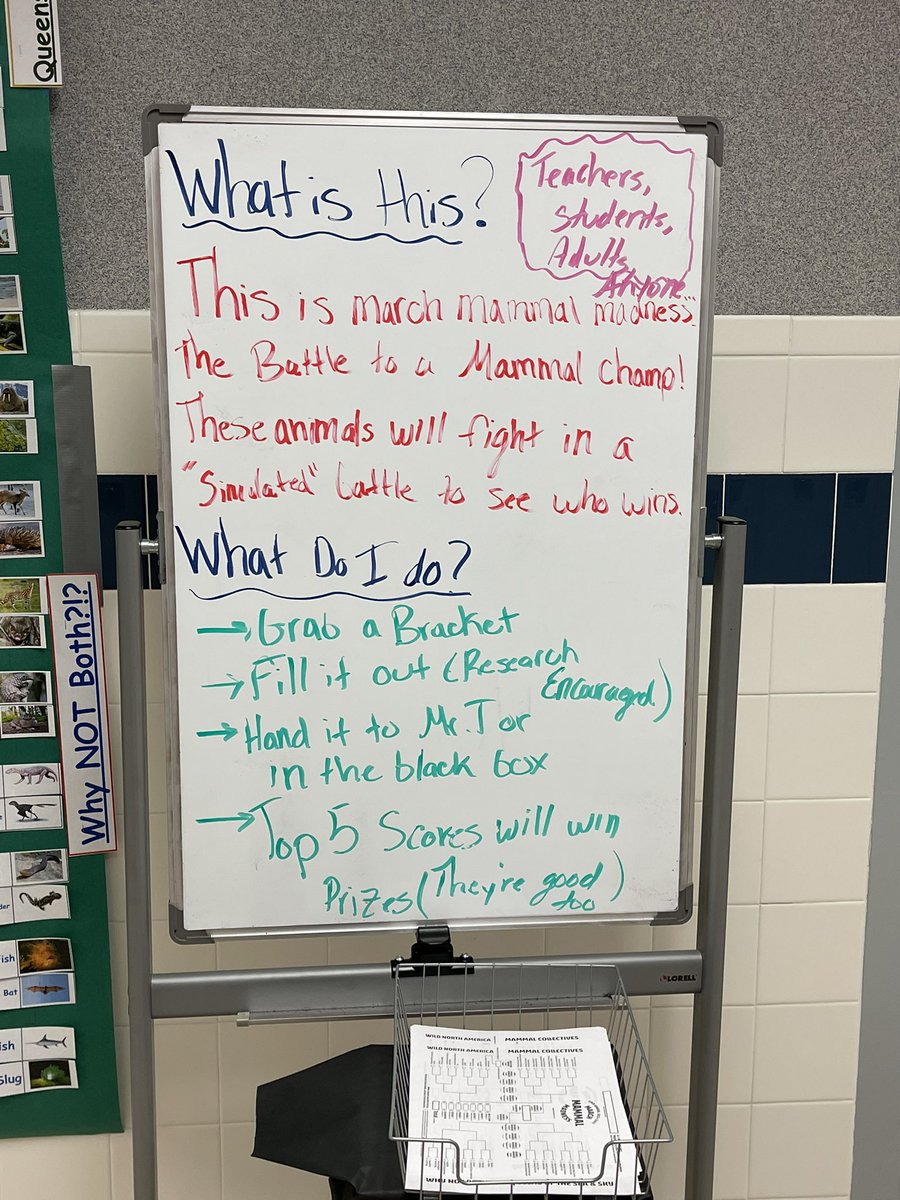 Queens
What is this?
Teachers,
Students,
Adults,
Anyone...
This is march mammal madness...
The Battle to a Mammal champ!
These animals will fight in a
"Simulated" battle to see who wins.
What Do I do?
→ Grab a Bracket
→ Fill it out (Research
Encouraged.)
→ Hand it to Mr. J or
in the black box
→ Top 5 Scores will win
Prizes (They're good
too)
Why NOT Both?!?
Bat
Slug
LORELL
WILD NORTH AMERICA MAMMAL COLLECTIVES
WILD NORTH AMERICA MAMMAL COLLECTIVES
MARCH
MAMMAL
MADNESS